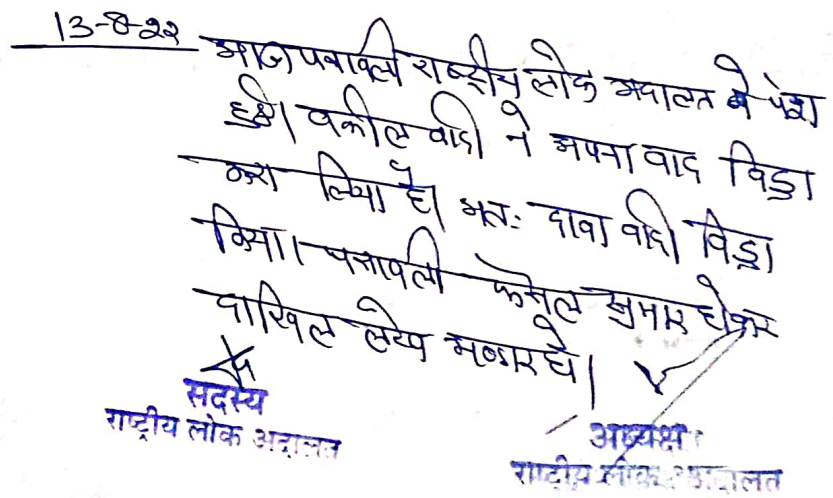 13-8-22 आज पत्रावली राष्ट्रीय लोक अदालत में पेश
हुई। वकील वादी ने अपना वाद विड्रा
करा लिया है। अतः दावा वादी विड्रा
किया। पत्रावली फैसल शुमार होकर
दाखिल लेख भण्डार हो।
सदस्य
राष्ट्रीय लोक अदालत
अध्यक्ष
राष्ट्रीय लोक अदालत